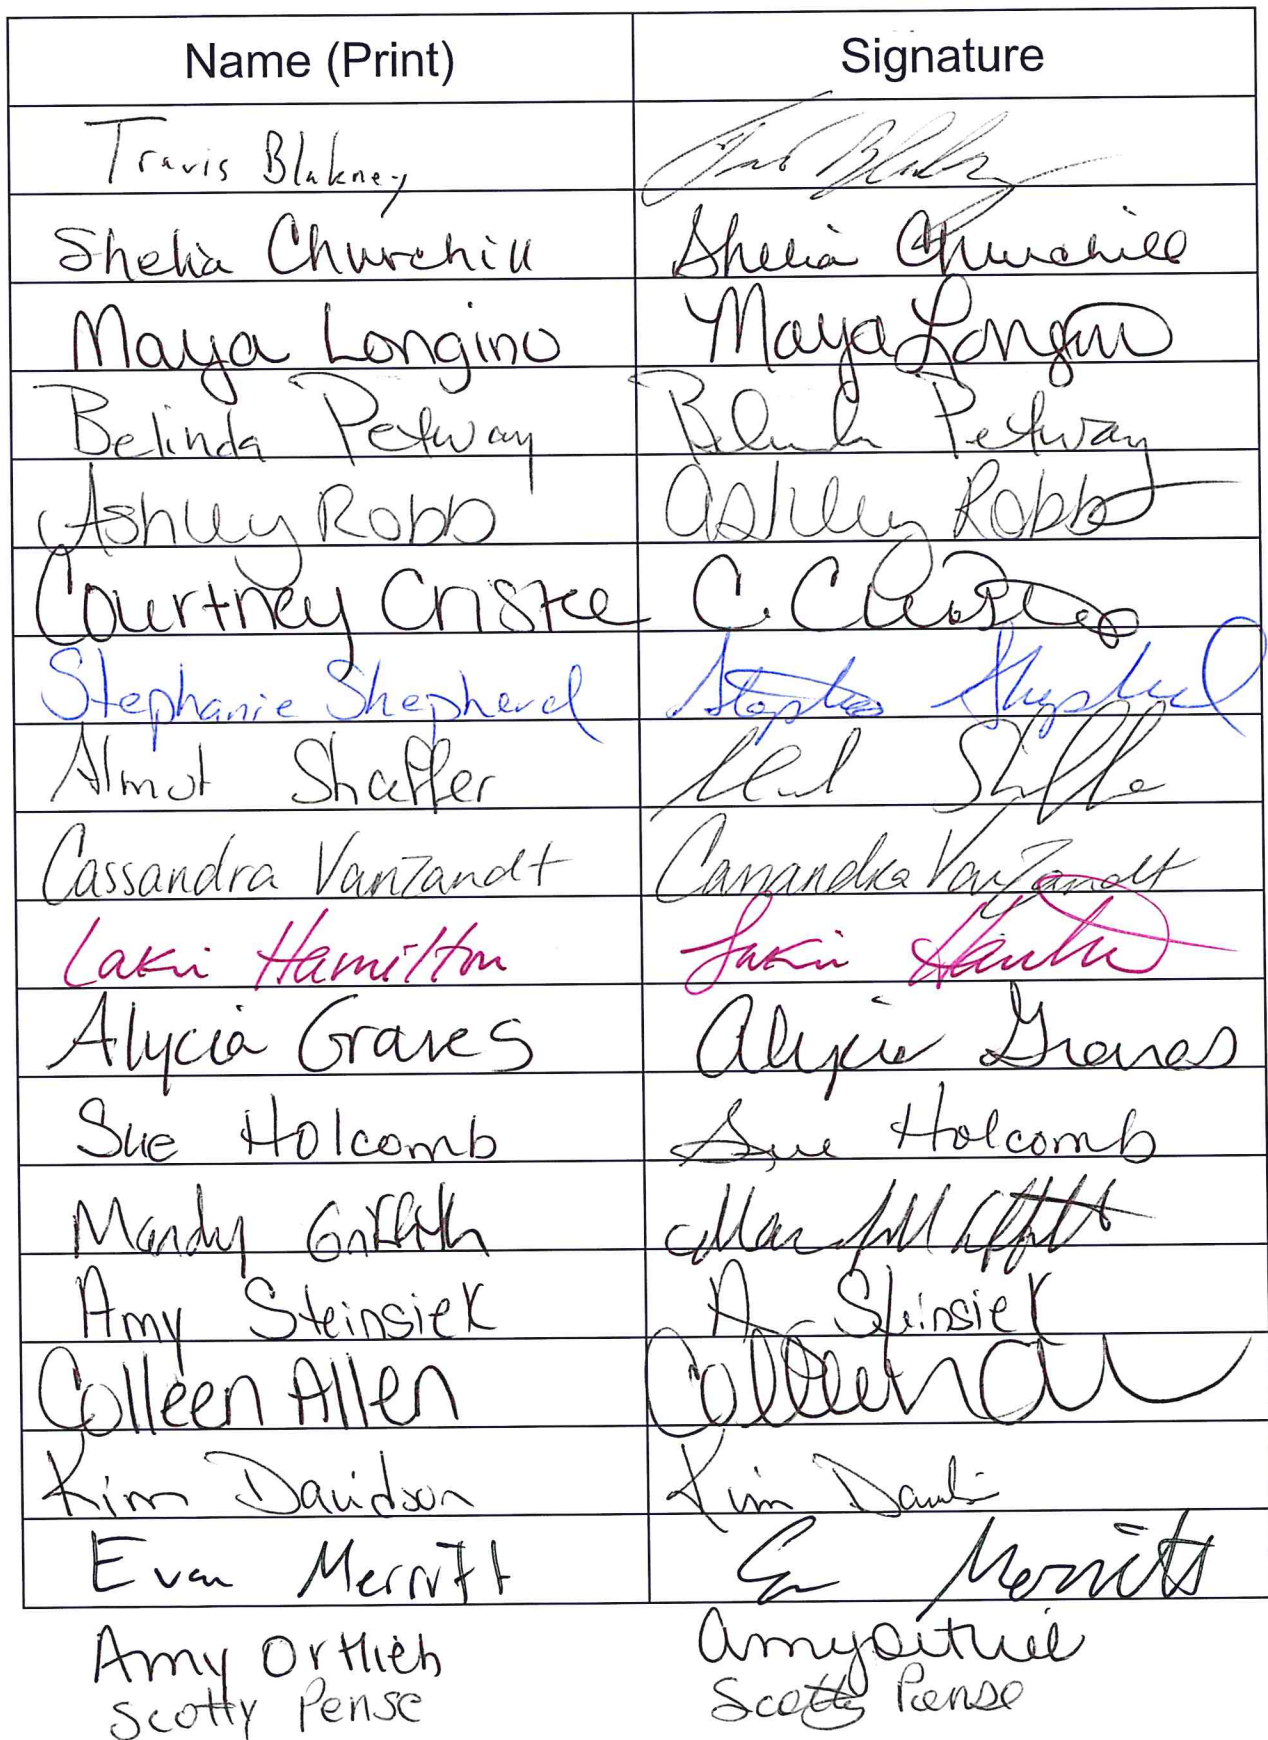 Name (Print) Signature
Travis Blakney
Shelia Churchill Shelia Churchill
Maya Longino Maya Longino
Belinda Petway Belinda Petway
Ashley Robb Ashley Robb
Courtney Cristee C. Cristee
Stephanie Shepherd Stephanie Shepherd
Almut Shaffer
Cassandra VanZandt Cassandra VanZandt
Lakin Hamilton Lakin
Alycia Graves Alycia Graves
Sue Holcomb Sue Holcomb
Mandy Griffith
Amy Steinsiek A. Steinsiek
Colleen Allen Colleen
Kim Davidson Kim
Evan Merritt Merritt
Amy Ortlieb Amy Ortlieb
Scotty Pense Scotty Pense